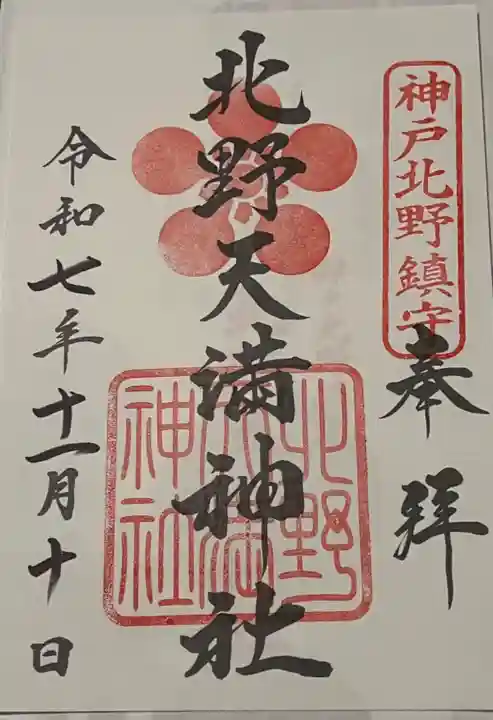 神戸北野鎮守
奉拝
北野天満神社
北野
天満
神社
令和七年十一月十日